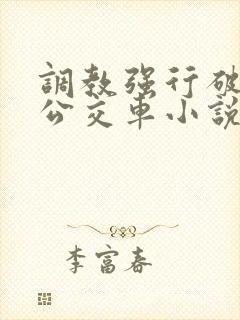 調教强行破
公交車小說
李富春